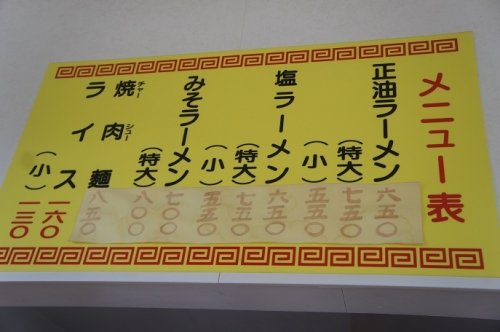 メニュー表
正油ラーメン 六五〇
(特大) 七五〇
(小) 五五〇
塩ラーメン 六五〇
(特大) 七五〇
(小) 五五〇
みそラーメン 七〇〇
(特大) 八〇〇
チャーシュー
焼肉麺 八五〇
ライス 一六〇
(小) 一三〇